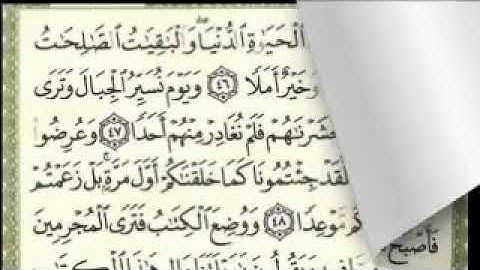 ٱلۡحَيَوٰةِ ٱلدُّنۡيَاۖ وَٱلۡبَٰقِيَٰتُ ٱلصَّٰلِحَٰتُ
وَخَيۡرٌ أَمَلٗا ٤٦ وَيَوۡمَ نُسَيِّرُ ٱلۡجِبَالَ وَتَرَى
حَشَرۡنَٰهُمۡ فَلَمۡ نُغَادِرۡ مِنۡهُمۡ أَحَدٗا ٤٧ وَعُرِضُواْ
لَّقَدۡ جِئۡتُمُونَا كَمَا خَلَقۡنَٰكُمۡ أَوَّلَ مَرَّةِۭۚ بَلۡ زَعَمۡتُمۡ
لَكُم مَّوۡعِدٗا ٤٨ وَوُضِعَ ٱلۡكِتَٰبُ فَتَرَى ٱلۡمُجۡرِمِينَ
فَأَصۡبَحَ